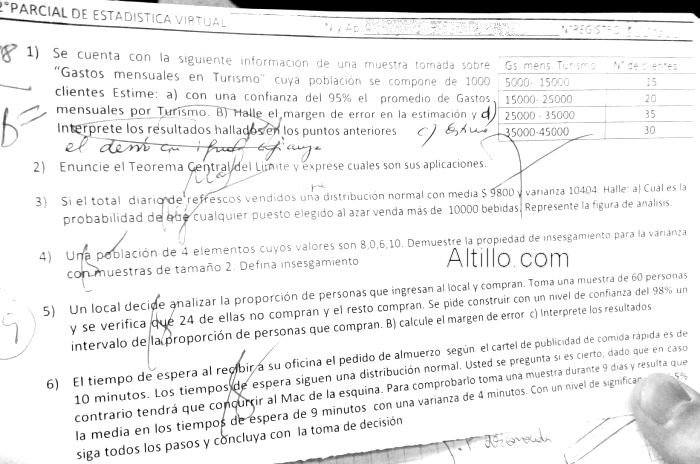 2° PARCIAL DE ESTADISTICA VIRTUAL
1) Se cuenta con la siguiente información de una muestra tomada sobre
"Gastos mensuales en Turismo" cuya población se compone de 1000
clientes Estime: a) con una confianza del 95% el promedio de Gastos
mensuales por Turismo. B) Halle el margen de error en la estimación y d)
Interprete los resultados hallados en los puntos anteriores
Gs. mens. Turismo N° de clientes
5000- 15000 15
15000- 25000 20
25000 - 35000 35
35000-45000 30
c)
el
2) Enuncie el Teorema Central del Limite y exprese cuales son sus aplicaciones.
3) Si el total diario de refrescos vendidos una distribución normal con media $ 9800 y varianza 10404. Halle: a) Cual es la
probabilidad de que cualquier puesto elegido al azar venda más de 10000 bebidas. Represente la figura de análisis.
4) Una población de 4 elementos cuyos valores son 8,0,6,10. Demuestre la propiedad de insesgamiento para la varianza
con muestras de tamaño 2. Defina insesgamiento
Altillo.com
5) Un local decide analizar la proporción de personas que ingresan al local y compran. Toma una muestra de 60 personas
y se verifica que 24 de ellas no compran y el resto compran. Se pide construir con un nivel de confianza del 98% un
intervalo de la proporción de personas que compran. B) calcule el margen de error c) Interprete los resultados
6) El tiempo de espera al recibir a su oficina el pedido de almuerzo según el cartel de publicidad de comida rápida es de
10 minutos. Los tiempos de espera siguen una distribución normal. Usted se pregunta si es cierto, dado que en caso
contrario tendrá que concurrir al Mac de la esquina. Para comprobarlo toma una muestra durante 9 dias y resulta que
la media en los tiempos de espera de 9 minutos con una varianza de 4 minutos. Con un nivel de 5%
siga todos los pasos y concluya con la toma de decisión